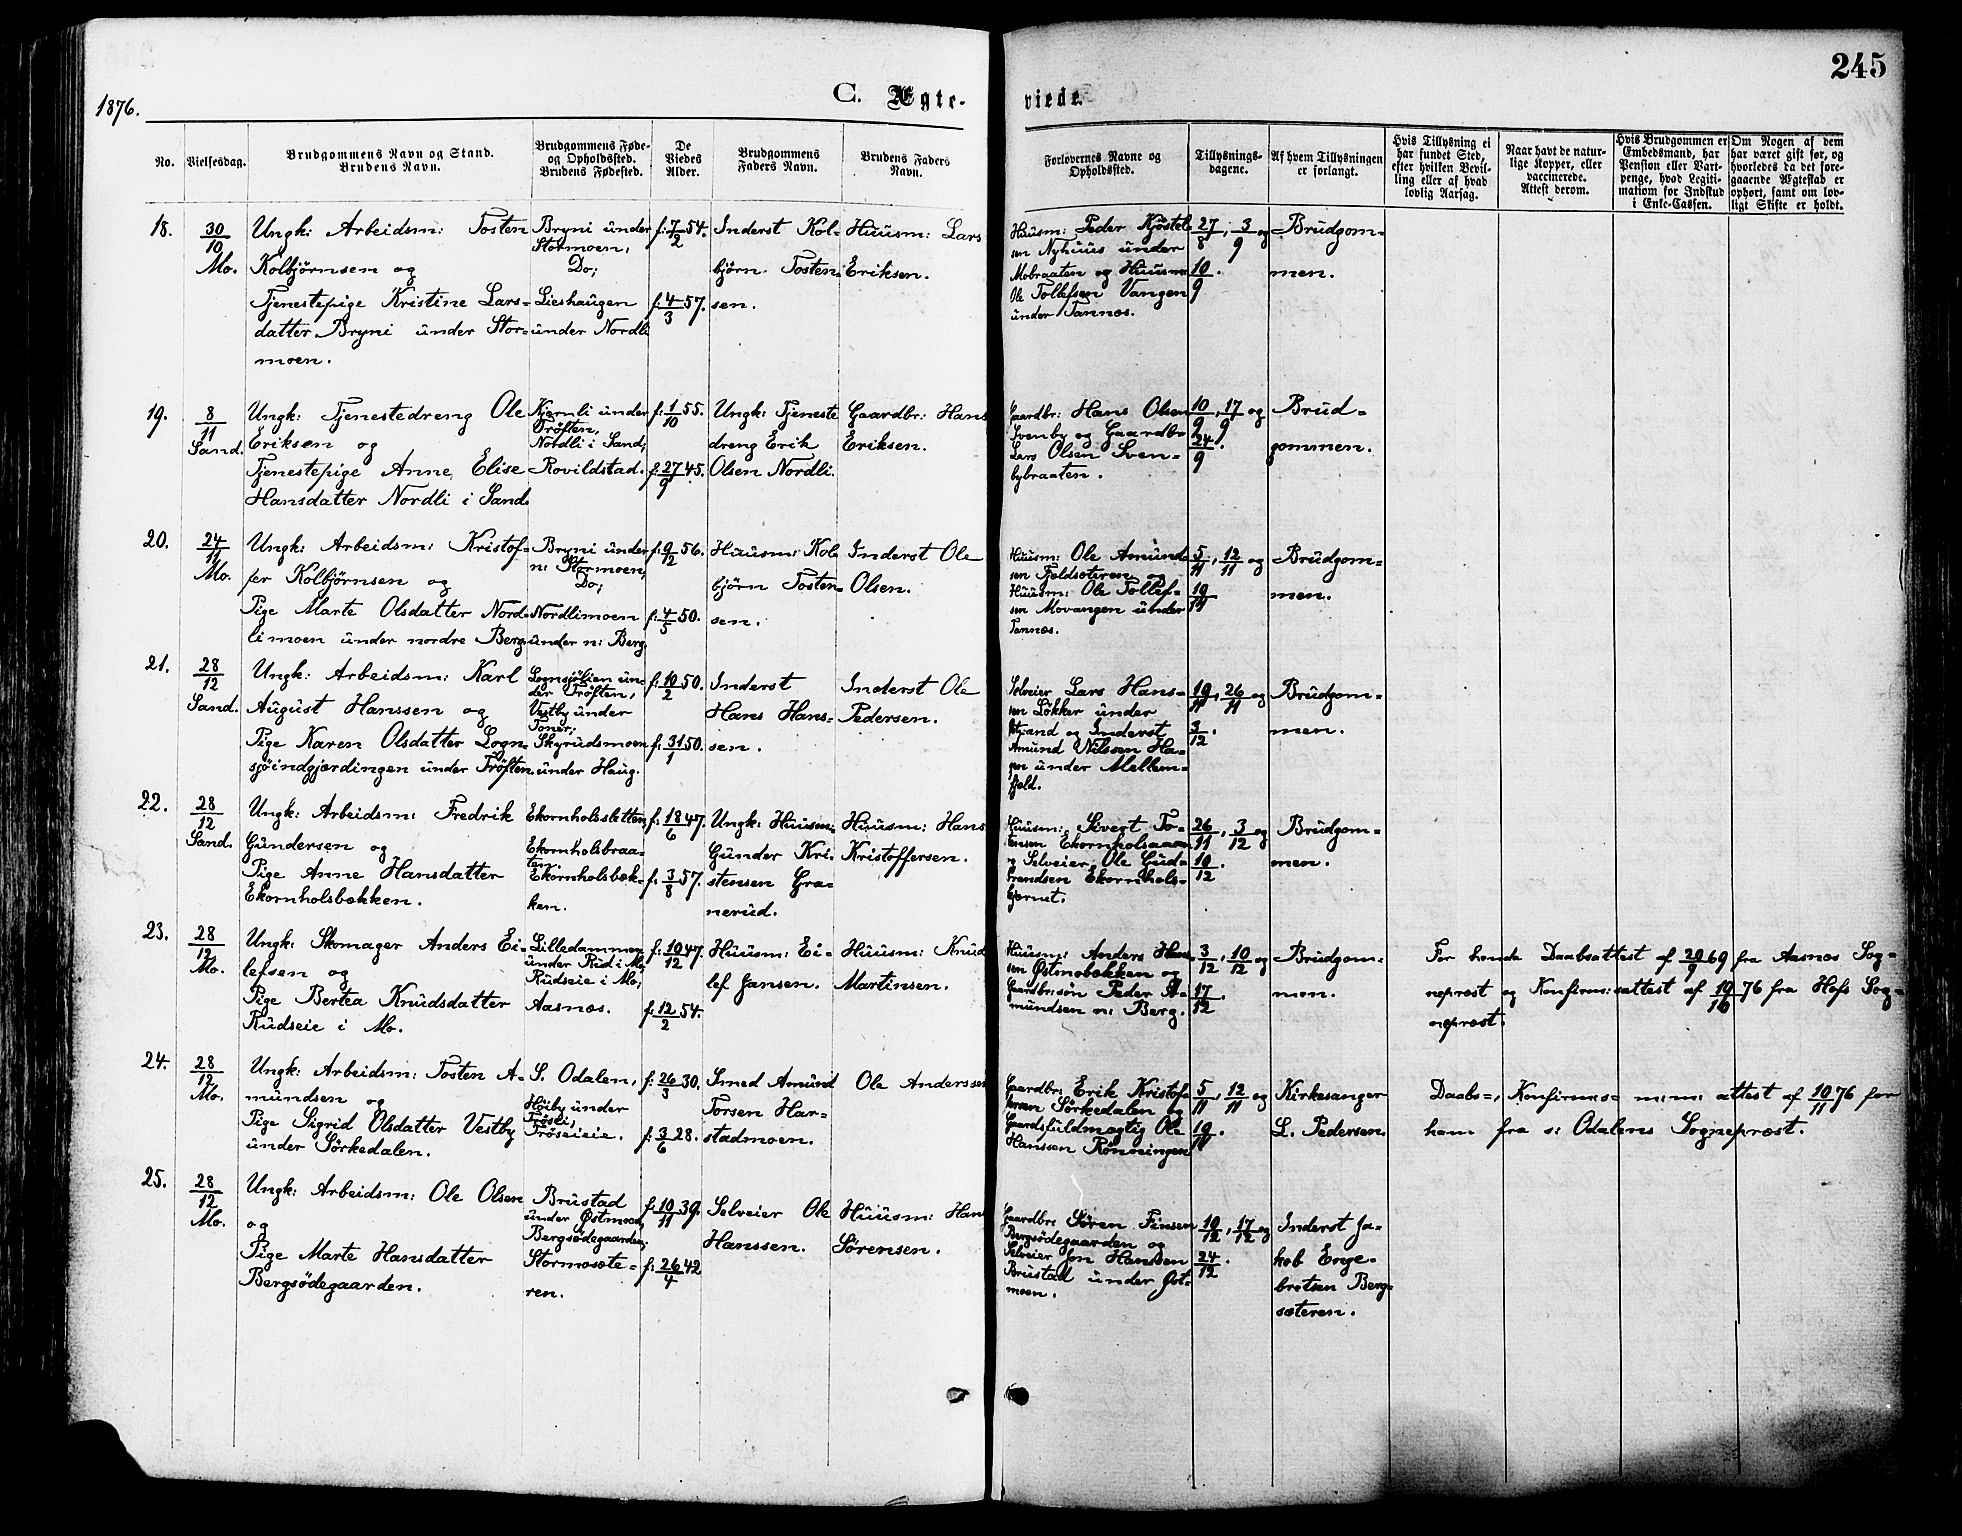 245
1876.
C. Ægte-
viede.
No.
Vielsesdag.
Brudgommens Navn og Stand.
Brudens Navn.
Brudgommens Føde-
og Opholdssted.
Brudens Fødested.
De
Viedes
Alder.
Brudgommens
Faders Navn.
Brudens Faders
Navn.
Forlovernes Navne og
Opholdssted.
Tillysnings-
dagene.
Af hvem Tillysningen
er forlangt.
Hvis Tillysning ei
har fundet Sted,
efter hvilken Bevil-
ling eller af hvad
lovlig Aarsag.
Naar havt de natur-
lige Kopper, eller
vaccinerede.
Attest derom.
Hvis Brudgommen er
Embedsmand, har
Pension eller Vart-
penge, hvad Legiti-
mation for Indskud
i Enke-Cassen.
Om Nogen af dem
har været gift før, og
hvorledes da det fore-
gaaende Ægteskab er
ophørt, samt om lov-
ligt Skifte er holdt.
18.
30/10
Mo.
Ungk: Arbeidsm: Tosten
Kolbjørnsen og
Tjenestepige Kristine Lars-
datter Bryni under Stor-
moen.
Bryni under
Stormoen,
Do;
Lieshaugen
under Nordli
f: 7/2 54.
f: 4/3 57.
Inderst Kol-
bjørn Tosten-
sen.
Huusm: Lars
Eriksen.
Huusm: Peder Kjøstel-
sen Nyhuus under
Mobraaten og Huusm
Ole Tollefsen Vangen
under Tannæs.
27/8, 3/9 og
10/9.
Brudgom-
men.
19.
8/11
Sand.
Ungk: Tjenestedreng Ole
Eriksen og
Tjenestepige Anne Elise
Hansdatter Nordli i Sand.
Kjernli under
Trøften,
Nordli i Sand;
Rovildstad.
f: 1/10 55.
f: 27/9 45.
Ungk: Tjeneste
dreng Erik
Olsen Nordli.
Gaardbr: Hans
Eriksen.
Gaardbr: Hans Olsen
Svenby og Gaardbr
Lars Olsen Sven-
bybraaten.
10/9, 17/9 og
24/9.
Brud-
gommen.
20.
24/11
Mo.
Ungk: Arbeidsm: Kristof-
fer Kolbjørnsen og
Pige Marte Olsdatter Nord-
limoen under nordre Berg.
Bryni under
n: Stormoen,
Do;
Nordlimoen
under n: Berg.
f: 9/12 56.
f: 4/5 50.
Huusm: Kol
bjørn Tosten-
sen.
Inderst Ole
Olsen.
Huusm: Ole Amund-
sen Fjeldsæteren og
Huusm: Ole Tollef-
sen Movangen under
Tannæs.
5/11, 12/11 og
19/11
Brudgom-
men.
21.
28/12
Sand.
Ungk: Arbeidsm: Karl
August Hanssen og
Pige Karen Olsdatter Logn-
sjøindgjærdingen under Trøften.
Lognsjølien un-
der Trøften,
Vestby under
Toner;
Skyrudsmoen
under Haug.
f: 10/2 50.
f: 31/1 50.
Inderst
Hans Hans-
sen.
Inderst Ole
Pedersen.
Selveier Lars Hans-
sen Løkker under
Strand og Inderst
Amund Nilssen Ha-
gen under Mellem-
fjeld.
19/11, 26/11 og
3/12.
Brudgom-
men.
22.
28/12
Sand.
Ungk: Arbeidsm: Fredrik
Gundersen og
Pige Anne Hansdatter
Ekornholsbækken.
Ekornholssletten
Ekornholsbraa-
ten.
Ekornholsbæk-
ken.
f: 18/6 47.
f: 3/8 57.
Ungk: Huusm:
Gunder Kri-
stensen Gra-
nerud.
Huusm: Hans
Kristoffersen.
Huusm: Sivert To-
Ekornholsaasen
og Selveier Ole Gud-
brandsen Ekornhols-
tjernet.
26/11, 3/12 og
10/12
Brudgom-
men.
23.
28/12
Mo.
Ungk: Skomager Anders Ei-
lefsen og
Pige Bertea Knudsdatter
Rudseie i Mo.
Lilledammen
under Rud i Mo,
Rudseie i Mo;
Aasnæs.
f: 10/12 47.
f: 12/2 54.
Huusm: Ei-
lef Jansen.
Huusm: Knud
Martinsen.
Huusm: Anders Han-
sen Østmobækken og
Gaardbr:søn Peder A-
mundsen n: Berg.
3/12, 10/12 og
17/12.
Brudgom:
men.
For hende Daabsattest af 20/9 69 fra Aasnæs Sog-
nepræst og Konfirm:sattest af 19/10 76 fra Hofs Sog-
nepræst.
24.
28/12
Mo.
Ungk: Arbeidsm: Tosten A-
mundsen og
Pige Sigrid Olsdatter Vestby
under Sörkedalen.
S. Odalen,
Høiby under
Trøseieie.
f: 26/3 30.
f: 3/6 28.
Smed Amund
Torsen Har-
stadmoen.
Ole Anderssen
Gaardbr: Erik Kristof-
fersen Sörkedalen og
Gaardsfuldmægtig Ole
Hanssen Rönningen
5/11, 12/11 og
19/11.
Kirkesanger
L. Pedersen.
Daabs-, Konfirm:s- m:m: attest af 10/11 76 for
ham fra s: Odalens Sognepræst.
25.
28/12
Mo.
Ungk: Arbeidsm: Ole Olsen
og
Pige Marte Hansdatter
Bergsödegaarden.
Brustad
under Østmoen,
Bergsödegaarden;
Stormosæte-
ren.
f: 10/11 39.
f: 26/4 42
Selveier Ole
Hanssen.
Huusm: Hans
Sørensen.
Gaardbr: Søren Finsen
Bergsödegaarden og
Selveier Jon Hanssen
Brustad under Øst-
moen.
10/12, 17/12 og
24/12.
Inderst Ja-
kob Enge-
bretsen Berg-
sæteren.